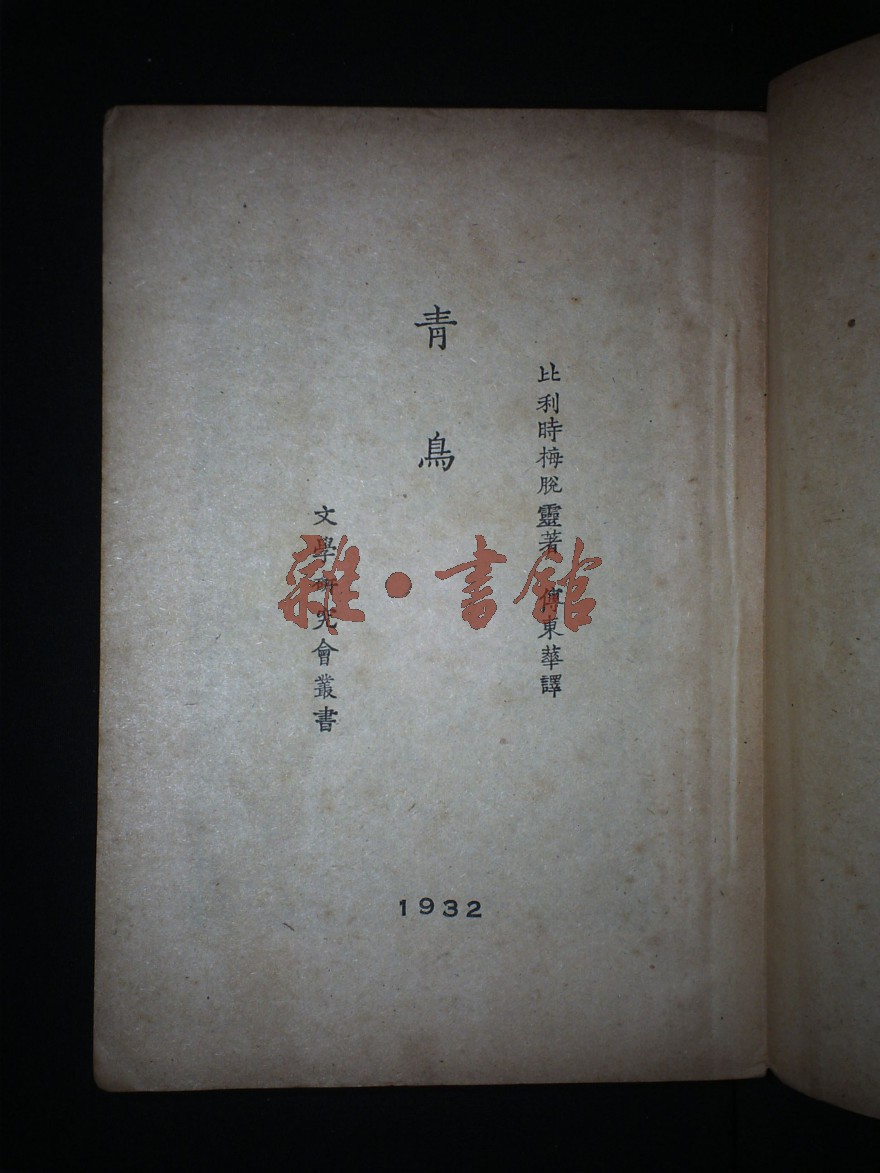 比利時梅脫靈著　傅東華譯
青鳥
文學研究會叢書
1932
雜·書館